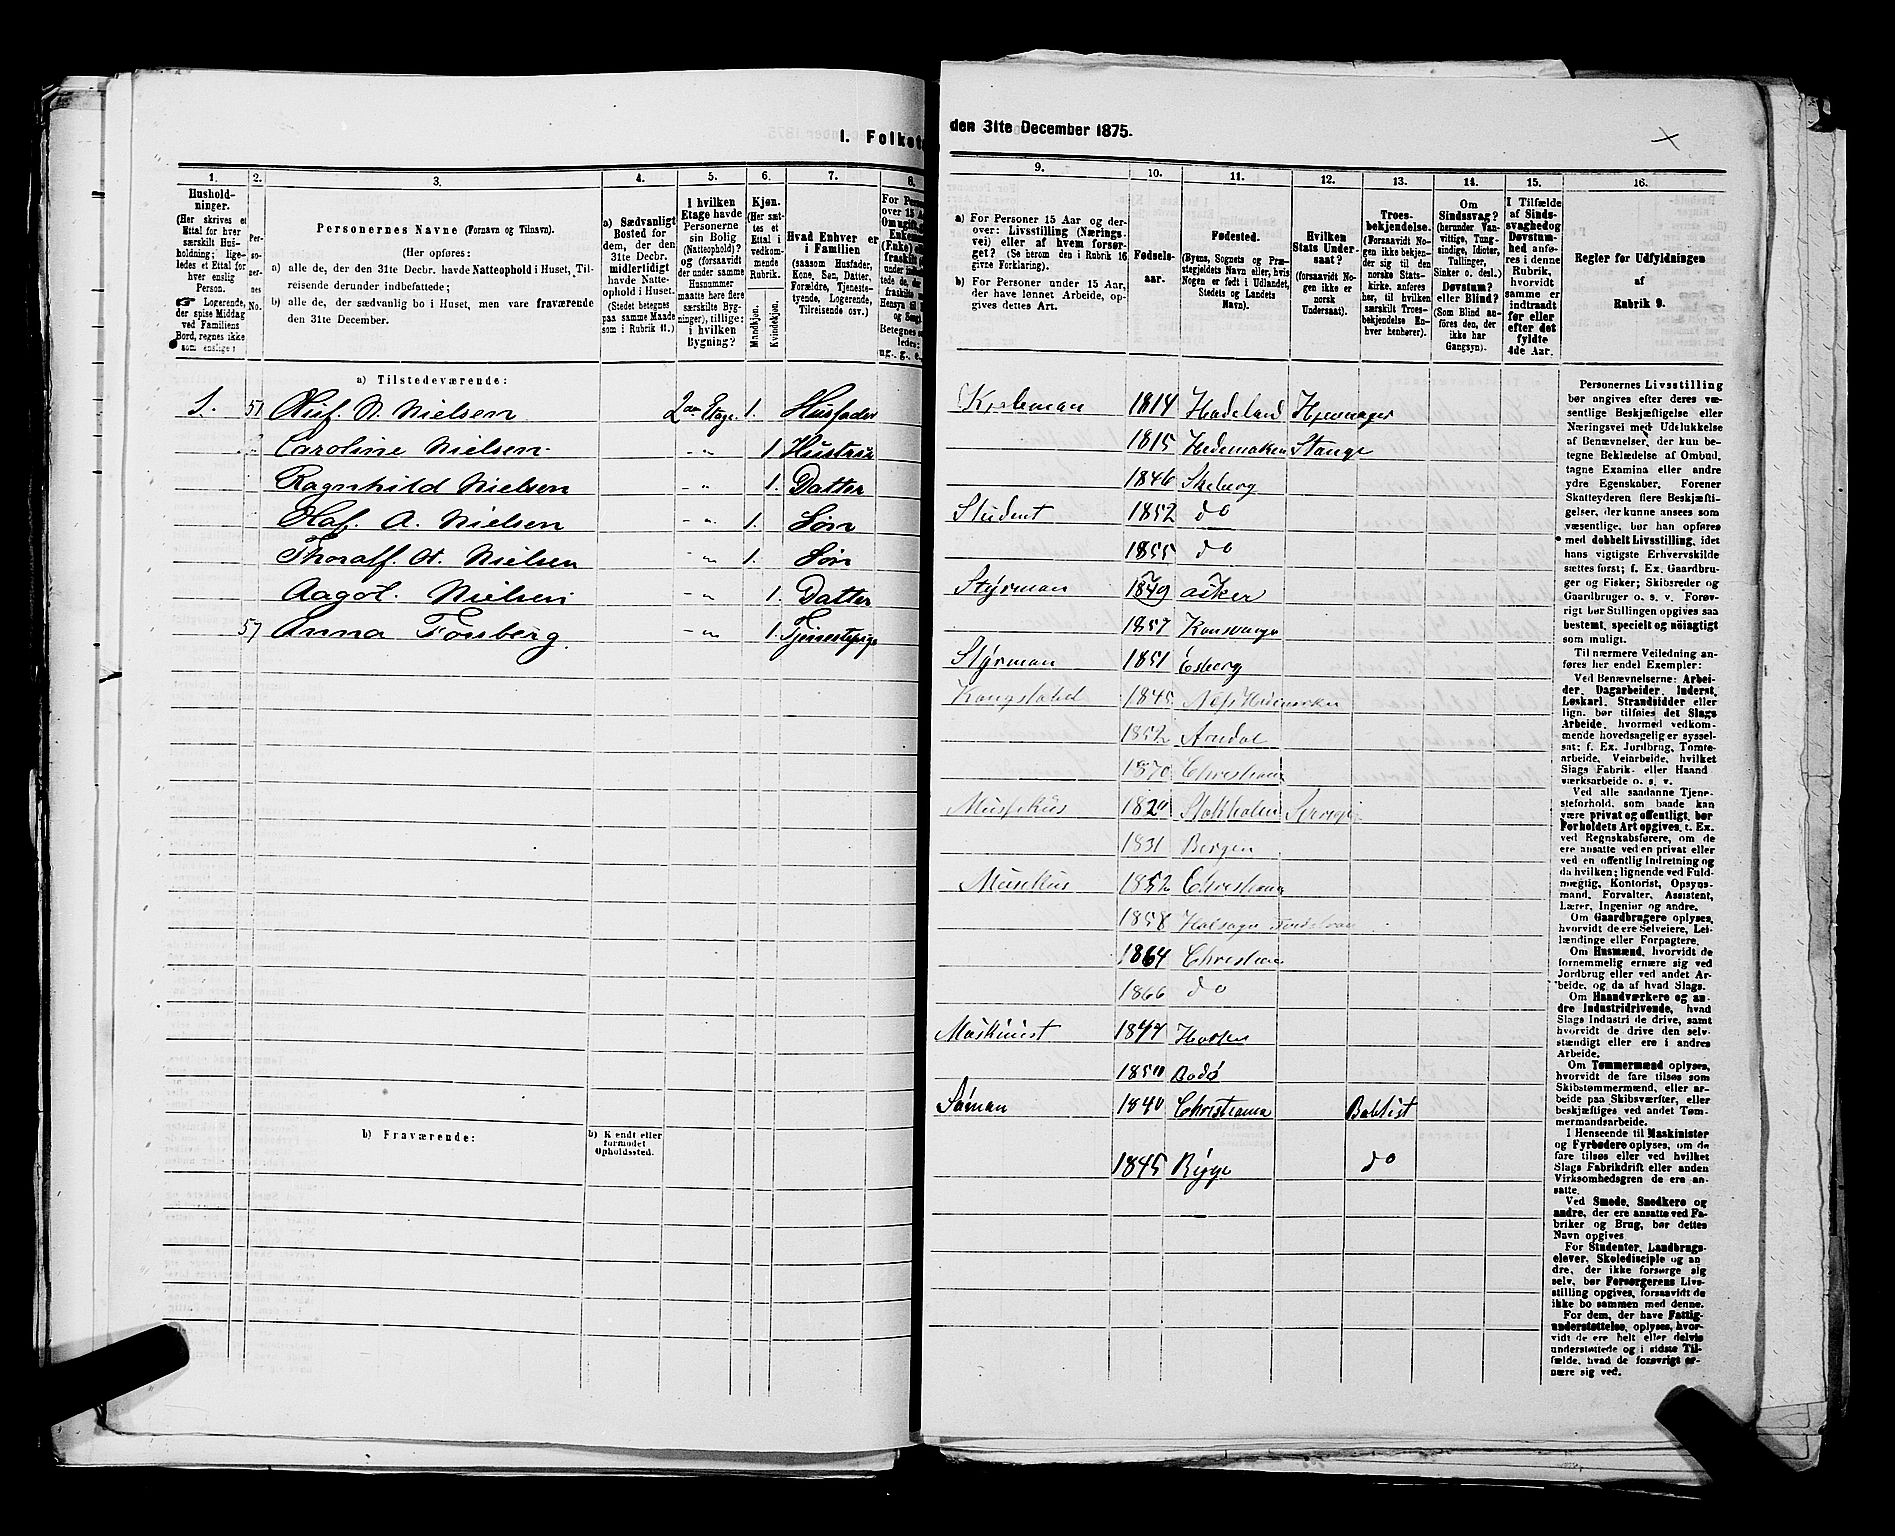 I. Folketæ
1.
Hushold-
ninger.
(Her skrives et
Ettal for hver
særskilt Hus-
holdning; lige-
ledes et Ettal for
hver enslig
Person.
☛ Logerende,
der spise Middag
ved Familiens
Bord, regnes ikke
som enslige)
2.
Per-
so-
ner-
nes
No.
3.
Personernes Navne (Fornavn og Tilnavn).
(Her opføres:
a) alle de, der den 31te Decbr. havde Natteophold i Huset, Til-
reisende derunder indbefattede;
b) alle de, der sædvanlig bo i Huset, men vare fraværende
den 31te December.
4.
a) Sædvanligt
Bosted for
dem, der den
31te Decbr.
midlertidigt
havde Natte-
ophold i Huset.
(Stedet betegnes
paa samme Maade
som i Rubrik 11.)
5.
I hvilken
Etage havde
Personerne
sin Bolig
(Natteophold)?
og (forsaavidt
der under samme
Husnummer
maatte høre flere
særskilte Byg-
ninger), tillige:
i hvilken
Bygning?
6.
Kjøn.
(Her sæt-
tes et
Ettal i
vedkom-
mende
Rubrik.
Mandkjøn.
Kvindekjøn.
7.
Hvad Enhver er
i Familien
(saasom Husfader,
Kone, Søn, Datter,
Forældre, Tjeneste-
tyende, Logerende,
Tilreisende osv.)
8.
a) Tilstedeværende:
1. 51 N. Nielsen 2den Etage. 1. Husfader
Caroline Nielsen. - „ 1. Hustru
Ragnhild Nielsen - „ 1. Datter
A. Nielsen - „ 1. Søn
Thoralf. Nielsen - „ 1. Søn
Aagot. Nielsen - „ 1. Datter
57 Anna Fossberg. - „ 1. Tjenestepige
b) Fraværende:
b) Kjendt eller
formodet
Opholdssted.
den 31te December 1875.
9.
a) For Personer 15 Aar og der-
over: Livsstilling (Nærings-
vei) eller af hvem forsør-
get? (Se herom den i Rubrik 16
givne Forklaring).
b) For Personer under 15 Aar,
der have lønnet Arbeide, op-
gives dettes Art.
10.
Fødsels-
aar.
11.
Fødested.
(Byens, Sognets og Præ-
stegjeldets Navn eller, hvis
Nogen er født i Udlandet,
Stedets og Landets
Navn).
12.
Hvilken
Stats Under-
saat?
(forsaavidt No-
gen ikke er
norsk
Undersaat).
13.
Troes-
bekjendelse.
(Forsaavidt No-
gen ikke bekjen-
der sig til den
norske Stats-
kirke, anføres
her, til hvilken
særskilt Troes-
bekjendelse En-
hver henhører).
14.
Om
Sindssvag?
(herunder Van-
vittige, Tung-
sindige, Idioter,
Tullinger,
Sinker o. desl.)
Døvstum?
eller Blind?
(Som Blind an-
føres den, der
ikke har
Gangsyn).
15.
I Tilfælde
af Sinds-
svaghed og
Døvstum-
hed anfø-
res i denne
Rubrik,
hvorvidt
samme er
indtraadt
før eller
efter det
fyldte
4de Aar.
16.
Regler for Udfyldningen
af
Rubrik 9.
1814 Hadeland
1815 Hedemarken Stange
1846
Student 1852 do
1855 do
Styrman 1849 Asker
1857
Styrman 1851
1845
1852 Arendal
1870 Christiania
Musikus
1831 Bergen
Musikus 1852 Christiania
1858
1864 Christiania
1866 do
Maskinist 1847
1850 Bodø
Søman 1840 Christiania Babtist
1845 Rygge do
Personernes Livsstilling
bør angives efter deres væ-
sentlige Beskjæftigelse eller
Næringsvei med Udelukkelse
af Benævnelser, der kun be-
tegne Beklædelse af Ombud,
tagne Examina eller andre
ydre Egenskaber. Forener
Skatteyderen flere Beskjæfti-
gelser, der kunne ansees som
væsentlige, bør han opføres
med dobbelt Livsstilling, idet
hans vigtigste Erhvervskilde
sættes først; f. Ex. Gaardbru-
ger og Fisker; Skibsreder og
Gaardbruger o. s. v. Forøv-
rigt bør Stillingen opgives saa
bestemt, specielt og nøiagtigt
som muligt.
Til nærmere Veiledning an-
føres her endel Exempler:
Ved Benævnelserne: Arbei-
der, Dagarbeider, Inderst,
Løskarl, Strandsidder eller
lign. bør tilføies det Slags
Arbeide, hvormed vedkom-
mende hovedsagelig er syssel-
sat; f. Ex. Jordbrug, Tomte-
arbeide, Veiarbeide, hvilket
Slags Fabrik- eller Haand-
værksarbeide o. s. v.
Ved alle saadanne Tjene-
steforhold, som baade kan
være privat og offentligt, bør
Forholdets Art opgives, t. Ex.
ved Regnskabsførere, om de
ere ansatte ved en privat eller
ved en offentlig Indretning og
da hvilken; lignende ved Fuld-
mægtig, Kontorist, Opsyns-
mand, Forvalter, Assistent,
Lærer, Ingeniør og andre.
Om Gaardbrugere oplyses,
hvorvidt de ere Selveiere, Lei-
lændinge eller Forpagtere.
Om Husmænd, hvorvidt de
fornemmelig ernære sig ved
Jordbrug eller ved andet Ar-
beide, og da af hvad Slags.
Om Haandværkere og an-
dre Industridrivende, hvad
Slags Industri de drive, samt
hvorvidt de drive den selv-
stændigt eller ere i andres
Arbeide.
Om Tømmermænd oplyses,
hvorvidt de fare tilsøs som
Skibstømmermænd, eller ar-
beide paa Skibsværfter, eller
beskjæftiges ved andet Tøm-
mermandsarbeide.
I Henseende til Maskinister
og Fyrbødere oplyses, om de
fare tilsøs eller ved hvilket
Slags Fabrikdrift eller anden
Virksomhedsgren de ere an-
satte.
Ved Smede, Snedkere og
andre, der ere ansatte ved Fa-
briker og Brug, bør dettes
Navn opgives
For Studenter, Landbrugs-
elever, Skoledisciple og an-
dre, der ikke forsørge sig
selv, bør Forsørgerens Livs-
stilling opgives, forsaavidt de
ikke bo sammen med denne.
For dem, der have Fattig-
understøttelse, oplyses, hvor-
vidt de ere helt eller delvis
understøttede og i sidste Til-
fælde, hvad de forøvrigt er-
nære sig ved.